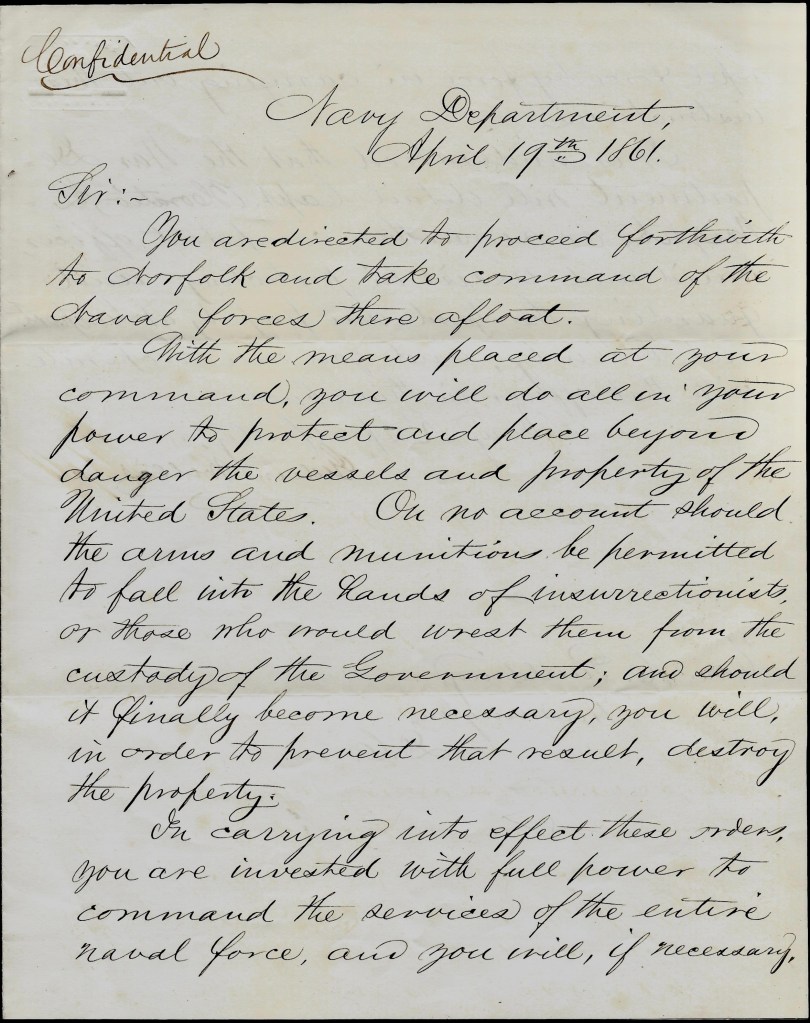 Confidential
Navy Department,
April 19th 1861.
Sir:-
You are directed to proceed forthwith
to Norfolk and take command of the
Naval forces there afloat.
With the means placed at your
command, you will do all in your
power to protect and place beyond
danger the vessels and property of the
United States. On no account should
the arms and munitions be permitted
to fall into the hands of insurrectionists,
or those who would wrest them from the
custody of the Government; and should
it finally become necessary, you will,
in order to prevent that result, destroy
the property.
In carrying into effect these orders,
you are invested with full power to
command the services of the entire
naval force, and you will, if necessary,